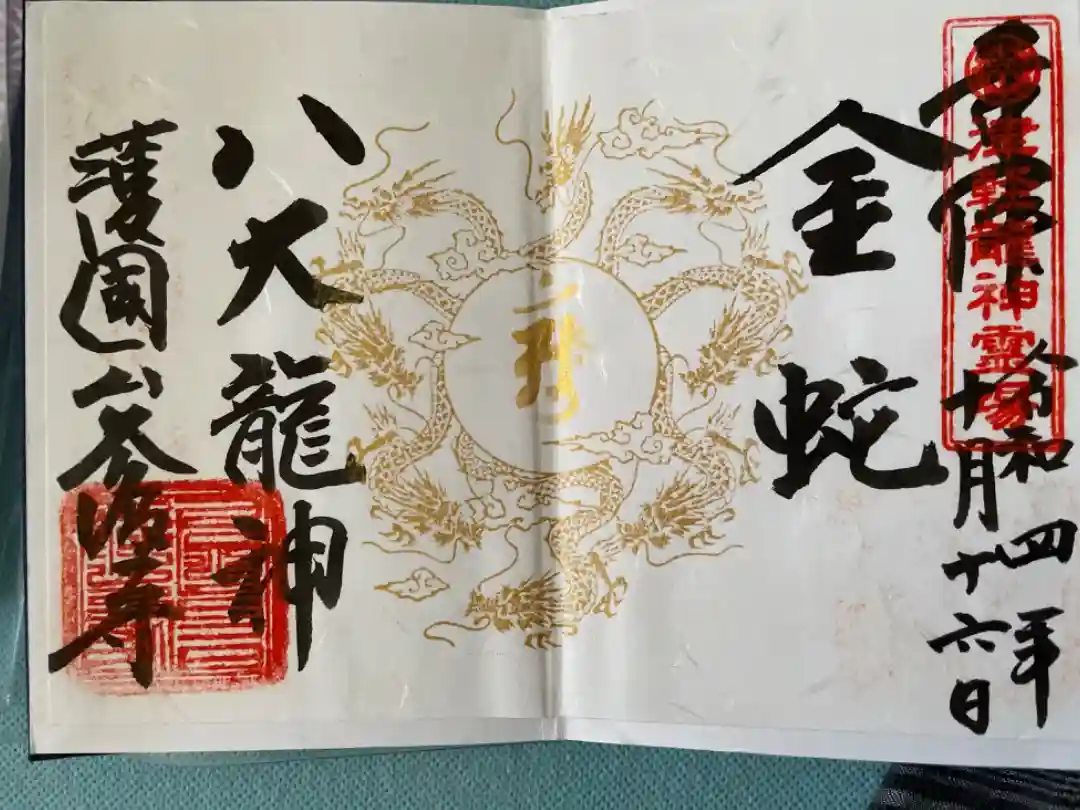 奉拝
津軽龍神霊場
令和四年
十月十六日
金蛇
八大龍神
護國山久渡寺